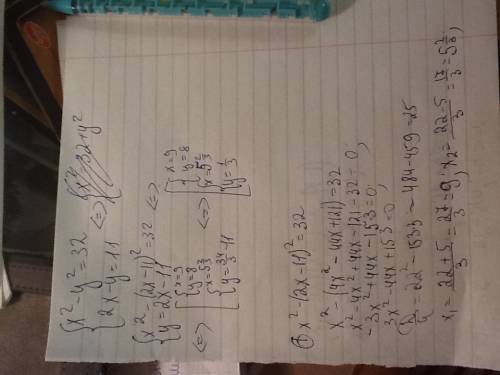 {x²-y²=32 <=>
{2x-y=11
{x²-(2x-11)²=32 <=>
{y=2x-11
<=> [{x=9 <=> [{x=9
{y=8 {y=8
{x=5 2/3 {x=5 2/3
{y=34/3-11 {y=1/3
① x²-(2x-11)²=32
x²-(4x²-44x+121)=32
x²-4x²+44x-121-32=0
-3x²+44x-153=0
3x²-44x+153=0
D/4=22²-153·3=484-459=25
x₁=(22+5)/3=27/3=9; x₂=(22-5)/3=17/3=5 2/3